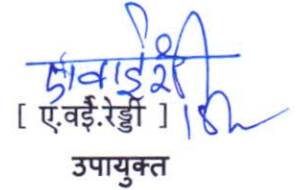 [ ए.वई.रेड्डी ]
उपायुक्त